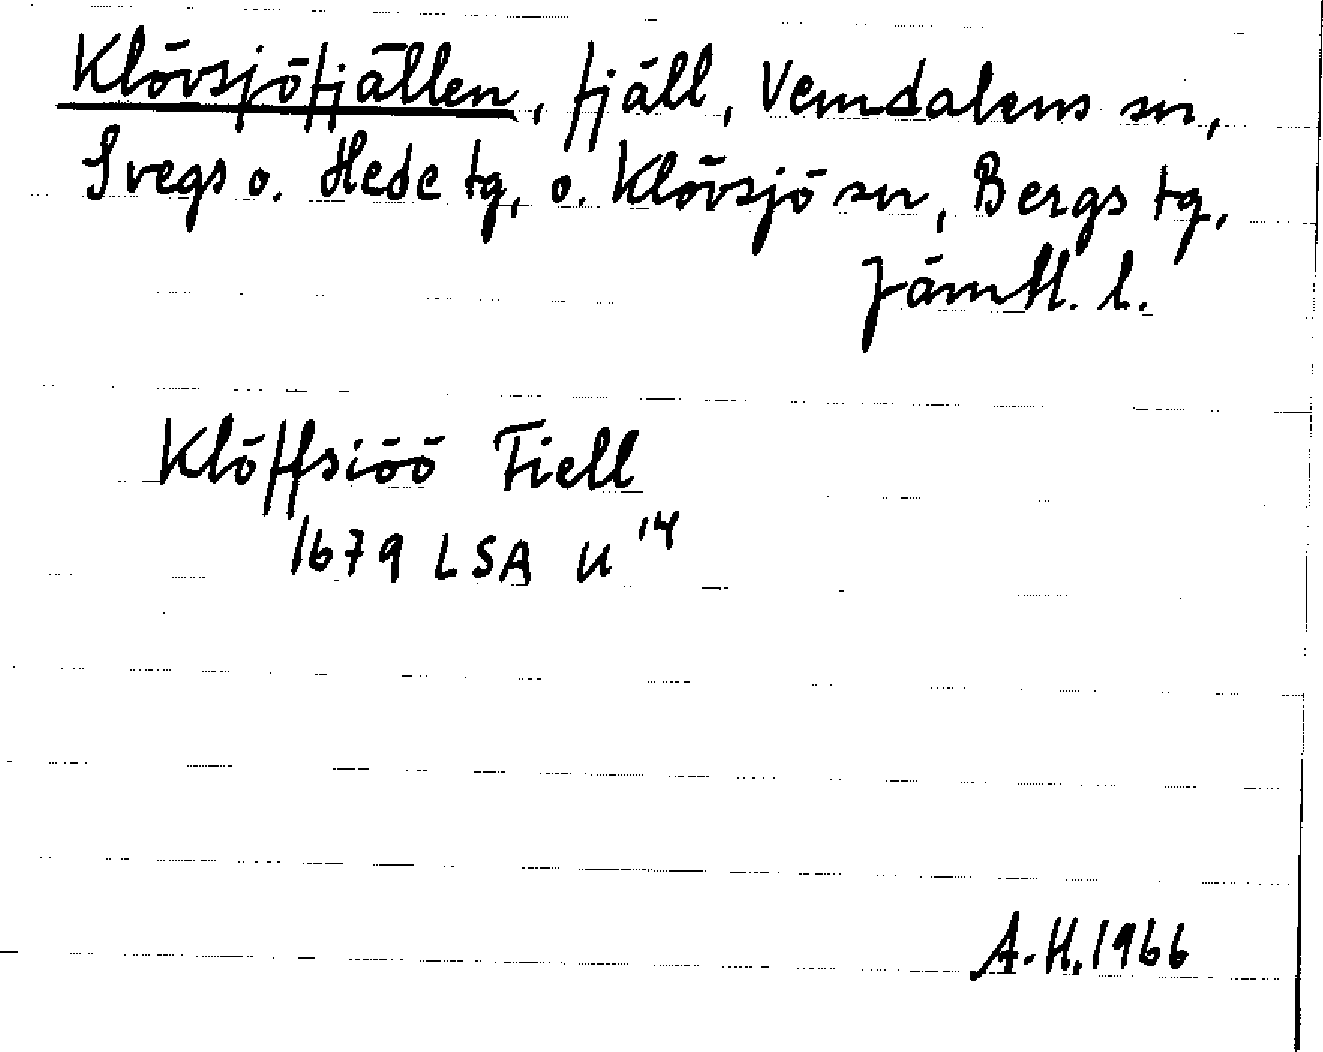 Klövsjöfjällen, fjäll, Vemdalens sn,
Svegs o. Hede tg, o. Klövsjö sn, Bergs tg,
Jämtl. l.
Klöffsiöö Fiell
1679 LSA U 14
A.H. 1966